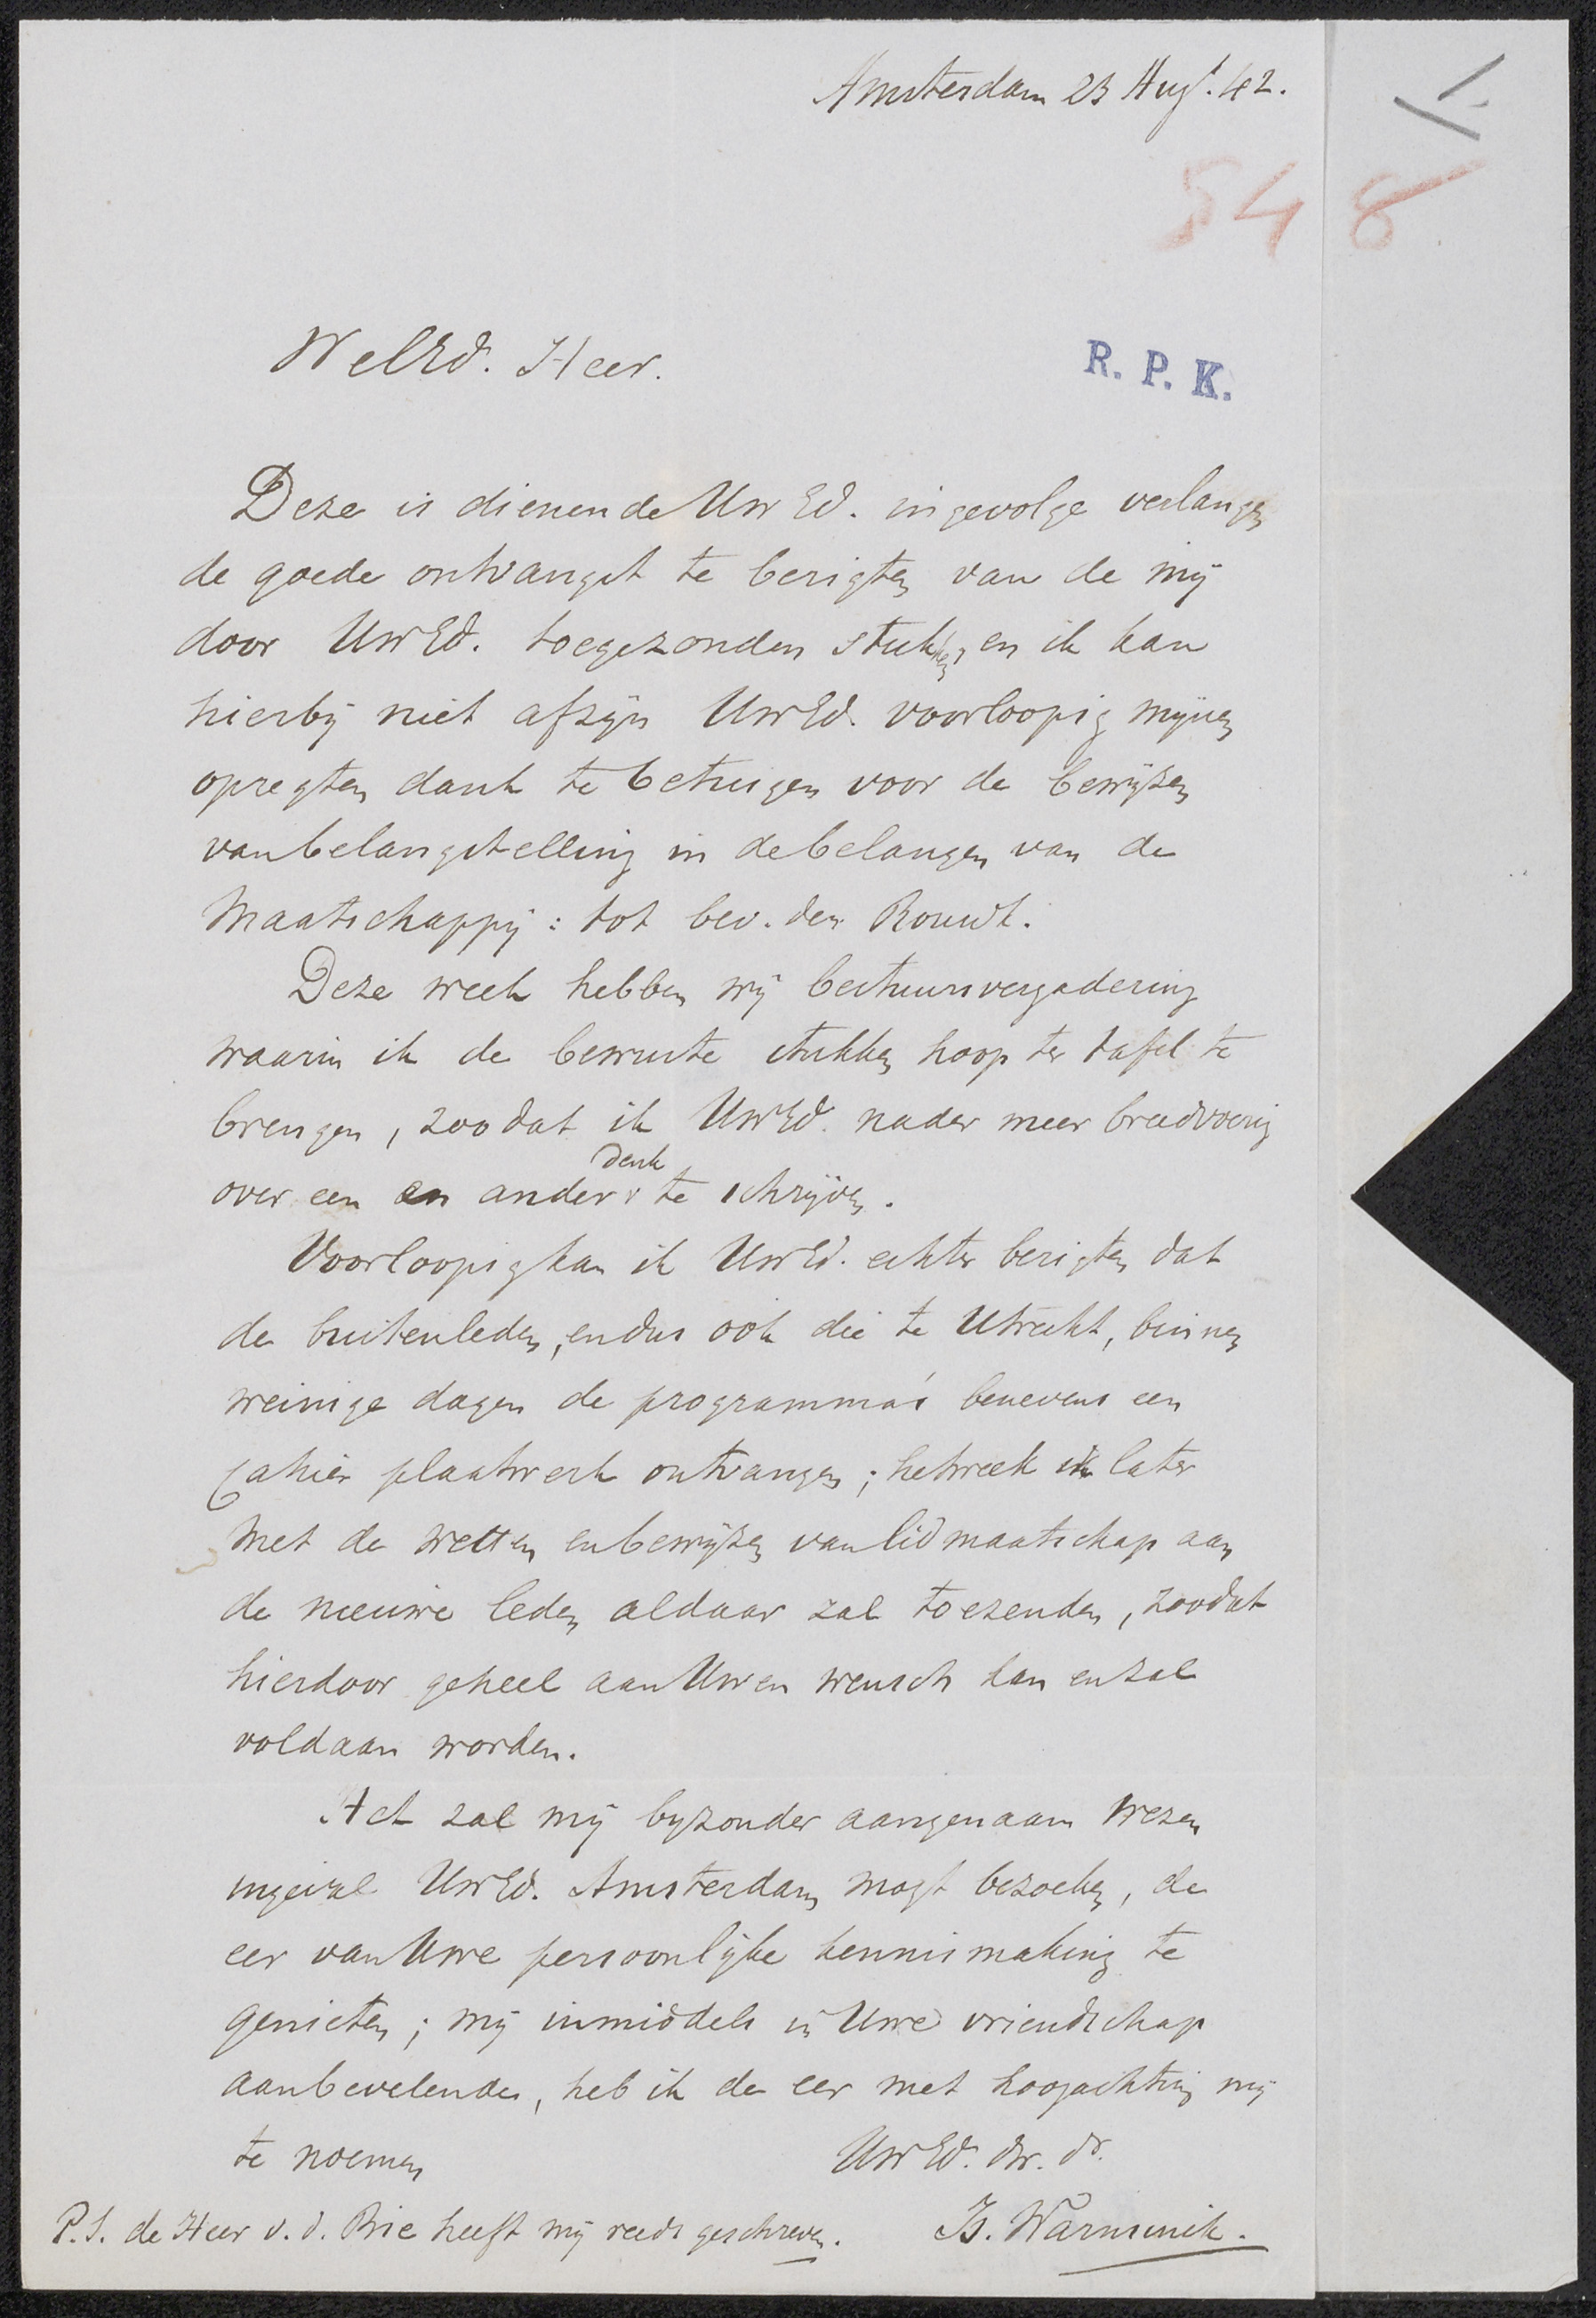 Amsterdam 23 Augt. 42.
548
WelEd. Heer.
R. P. K.
Deze is dienende UwEd. ingevolge verlangen
de goede ontvangst te berigten van de mij
door UwEd. toegezonden stukken, en ik kan
hierbij niet afzijn UwEd. voorloopig mijnen
opregten dank te betuigen voor de bewijzen
van belangstelling in de belangen van de
Maatschappij: tot bev. der Bouwk.
Deze week hebben wij bestuursvergadering
waarin ik de bewuste stukken hoop ter tafel te
brengen, zoodat ik UwEd. nader meer breedvoerig
denk
over een en ander te schrijven.
Voorloopig kan ik UwEd. echter berigten dat
de buitenleden, en dus ook die te Utrecht, binnen
weinige dagen de programma's benevens een
Cahier plaatwerk ontvangen; hetweek ik later
met de wetten en bewijzen van lidmaatschap aan
de nieuwe leden aldaar zal toezenden, zoodat
hierdoor geheel aan Uwen wensch kan en zal
voldaan worden.
Het zal mij byzonder aangenaam wezen
ingeval UwEd. Amsterdam mogt bezoeken, de
eer van Uwe persoonlijke kennismaking te
genieten; mij inmiddels in Uwe vriendschap
aanbevelende, heb ik de eer met hoogachting mij
te noemen
UwEd. dw. dr.
P.S. de Heer v. d. Brie heeft mij reeds geschreven.
Is. Warnsinck.